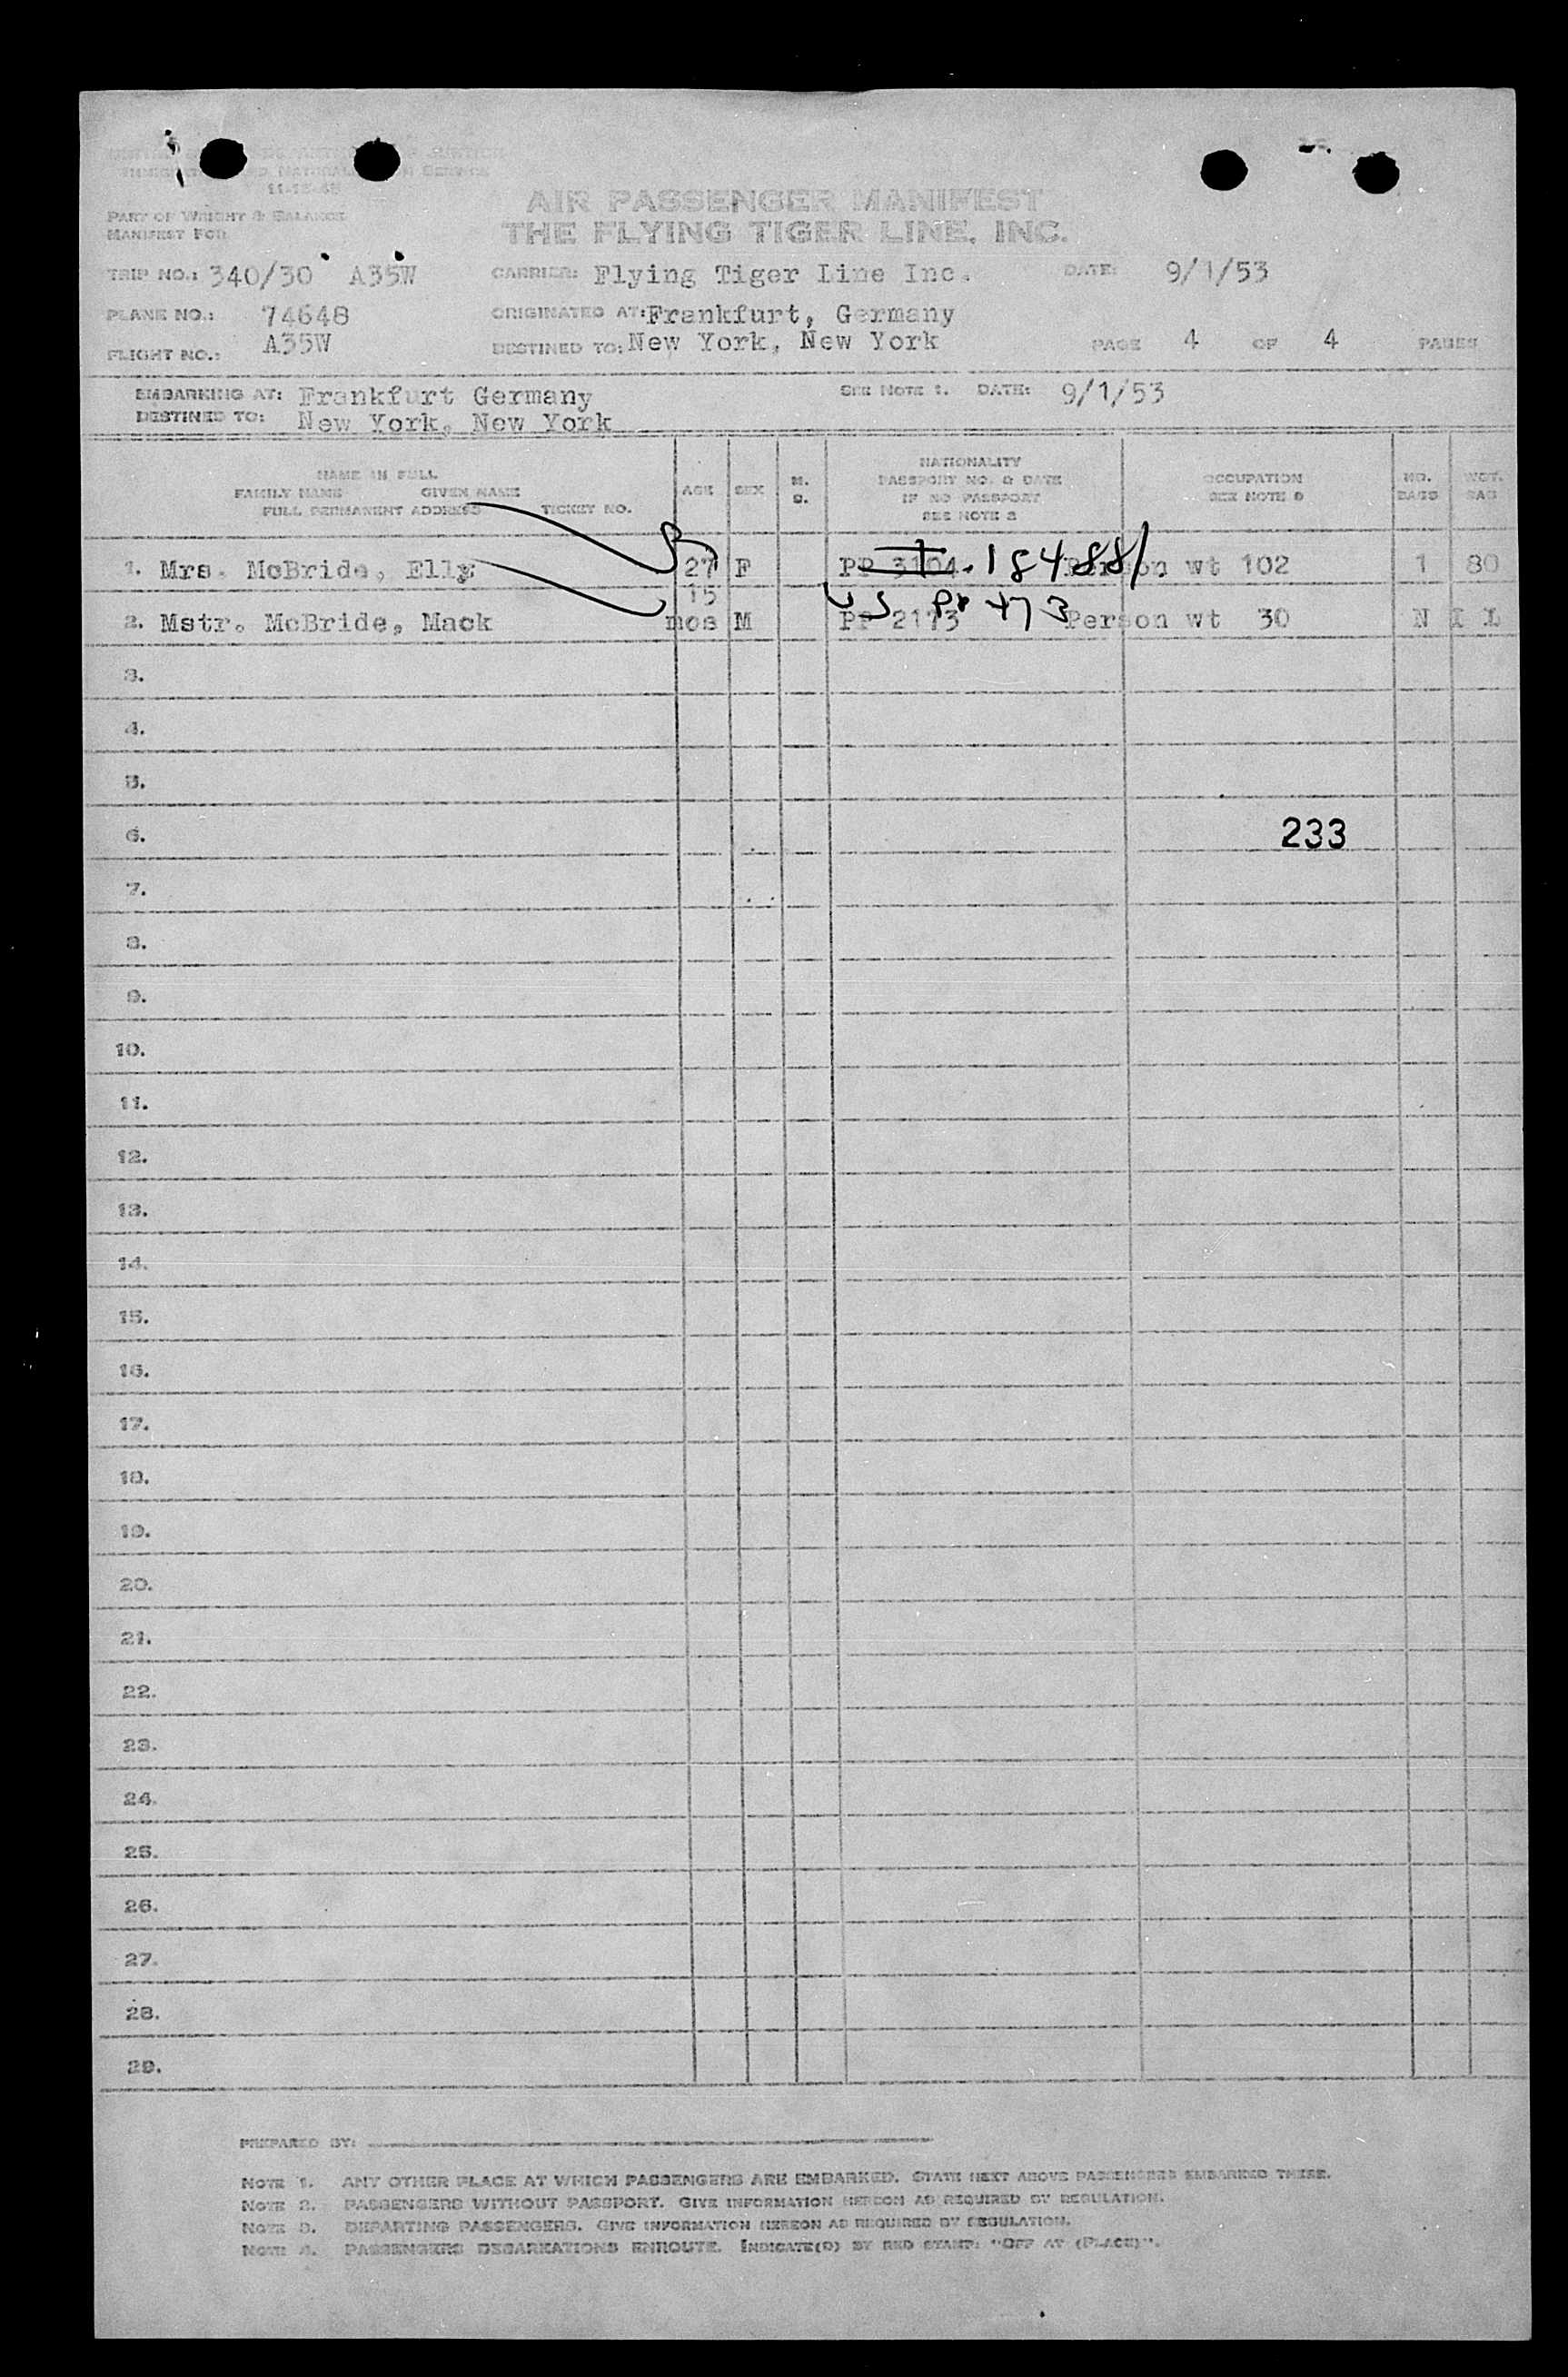 UNITED STATES DEPARTMENT OF JUSTICE
IMMIGRATION AND NATURALIZATION SERVICE
11-15-48
PART OF WEIGHT & BALANCE
MANIFEST FOR
AIR PASSENGER MANIFEST
THE FLYING TIGER LINE, INC.
TRIP NO.: 340/30 A35W CARRIER: Flying Tiger Line Inc. DATE: 9/1/53
PLANE NO.: 74648 ORIGINATED AT: Frankfurt, Germany
FLIGHT NO.: A35W DESTINED TO: New York, New York PAGE 4 OF 4 PAGES
EMBARKING AT: Frankfurt Germany SEE NOTE 1. DATE: 9/1/53
DESTINED TO: New York, New York
NAME IN FULL
FAMILY NAME GIVEN NAME
FULL PERMANENT ADDRESS TICKET NO.
AGE
SEX
M.
S.
NATIONALITY
PASSPORT NO. & DATE
IF NO PASSPORT
SEE NOTE 2
OCCUPATION
SEE NOTE 3
NO.
BAGS
WGT.
BAG
1. Mrs. McBride, Elly 27 F PP 3104 184881 Person wt 102 1 80
15
US PP 473
2. Mstr. McBride, Mack mos M PP 2173 Person wt 30 N I L
3.
4.
5.
6. 233
7.
8.
9.
10.
11.
12.
13.
14.
15.
16.
17.
18.
19.
20.
21.
22.
23.
24.
25.
26.
27.
28.
29.
PREPARED BY:
NOTE 1. ANY OTHER PLACE AT WHICH PASSENGERS ARE EMBARKED. STATE NEXT ABOVE PASSENGERS EMBARKED THERE.
NOTE 2. PASSENGERS WITHOUT PASSPORT. GIVE INFORMATION HEREON AS REQUIRED BY REGULATION.
NOTE 3. DEPARTING PASSENGERS. GIVE INFORMATION HEREON AS REQUIRED BY REGULATION.
NOTE 4. PASSENGERS DEBARKATIONS ENROUTE. INDICATE(D) BY RED STAMP: "OFF AT (PLACE)".